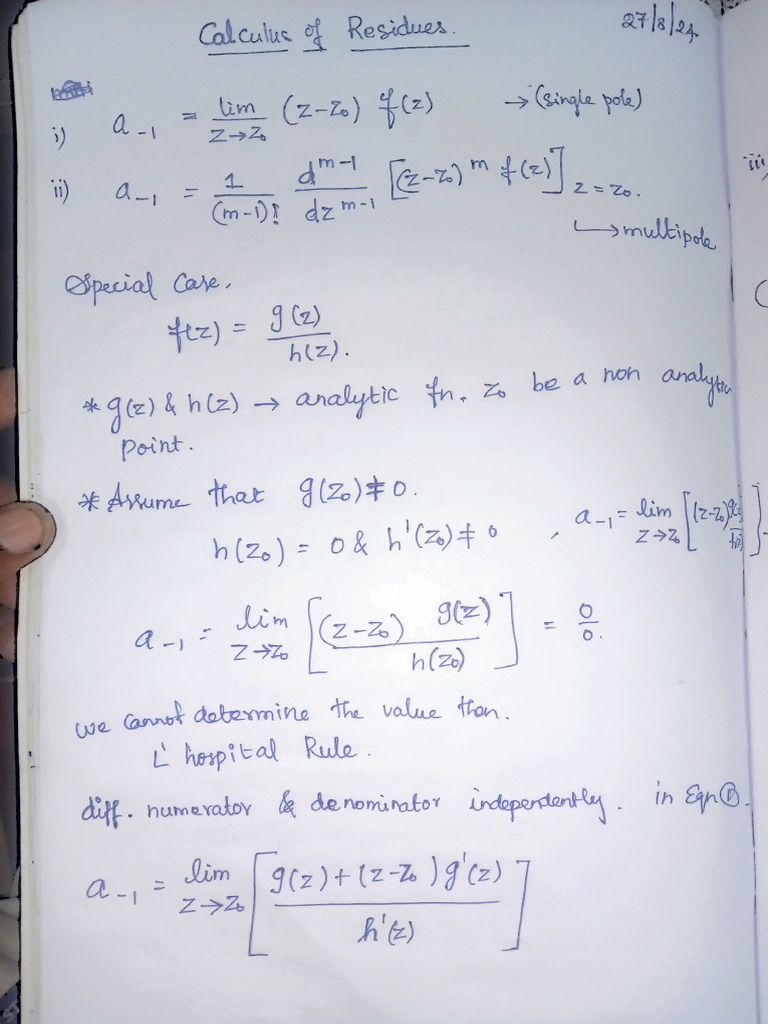 Calculus of Residues.
27/8/24
i) a₋₁ = lim z→z₀ (z-z₀) f(z) → (single pole)
ii) a₋₁ = 1/(m-1)! d^(m-1)/dz^(m-1) [(z-z₀)^m f(z)] z=z₀.
↳ multipole
iii)
Special Case,
f(z) = g(z)/h(z).
* g(z) & h(z) → analytic fn. z₀ be a non analytic
point.
* Assume that g(z₀) ≠ 0.
h(z₀) = 0 & h'(z₀) ≠ 0 , a₋₁ = lim z→z₀ [(z-z₀) g(z)/h(z)]
a₋₁ = lim z→z₀ [(z-z₀) g(z)/h(z₀)] = 0/0.
we cannot determine the value then.
L' hospital Rule.
diff. numerator & denominator independently. in Eqn ①.
a₋₁ = lim z→z₀ [g(z)+(z-z₀)g'(z)/h'(z)]